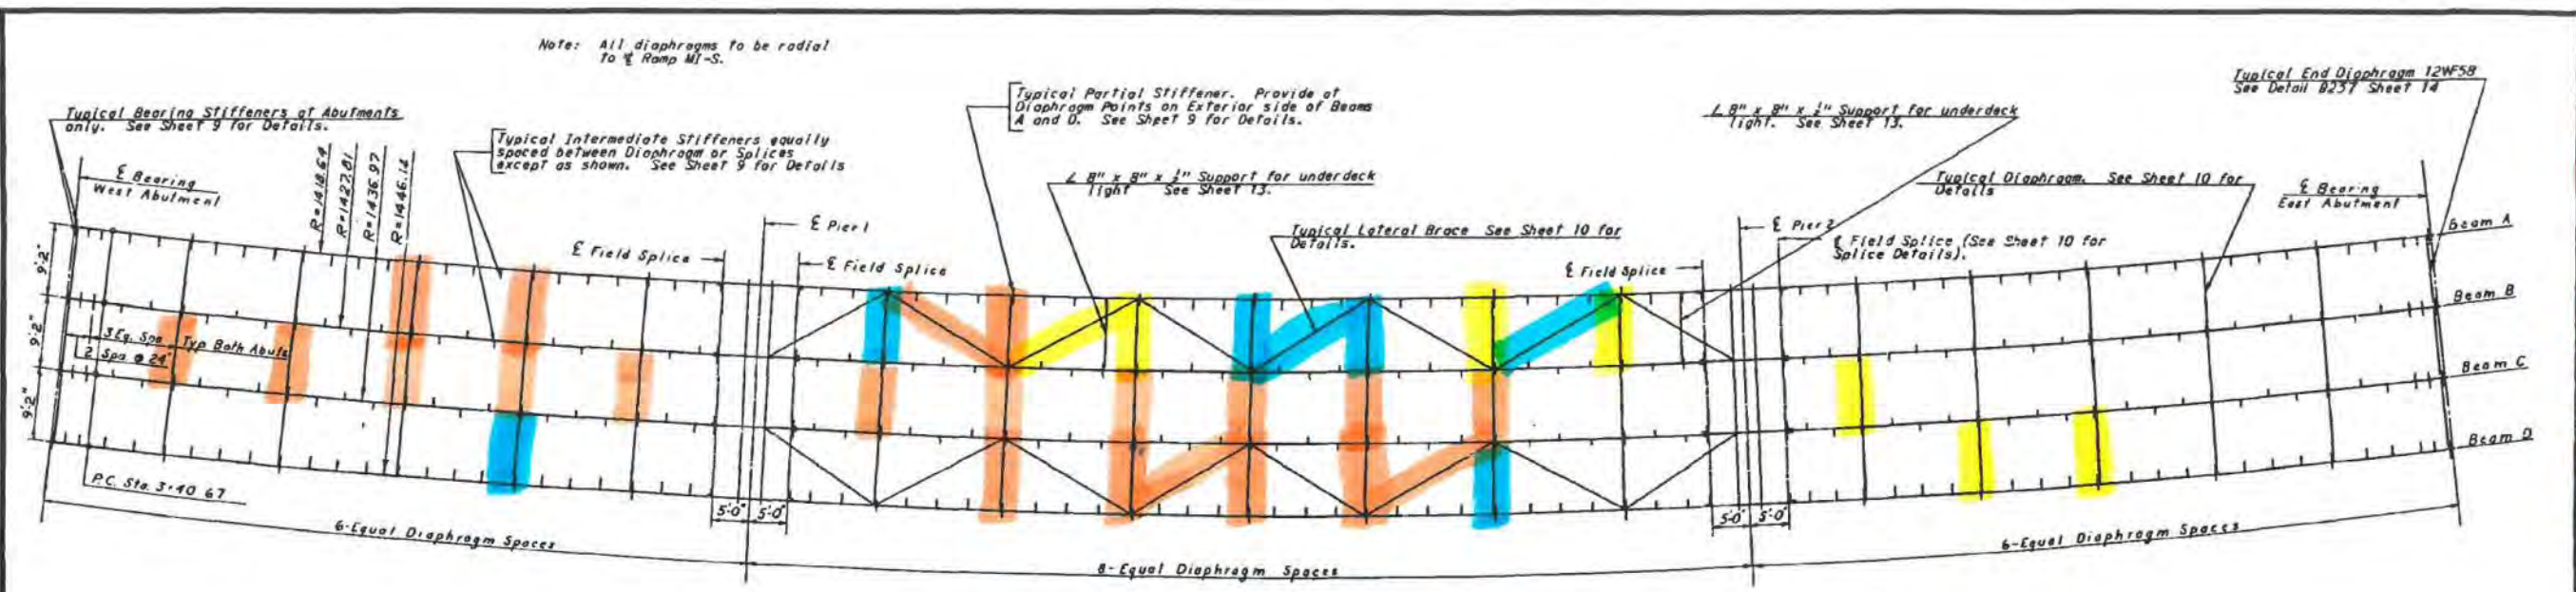 Note: All diaphragms to be radial
to ℄ Ramp MI-S.
Typical Bearing Stiffeners at Abutments
only. See Sheet 9 for Details.
Typical Intermediate Stiffeners equally
spaced between Diaphragm or Splices
except as shown. See Sheet 9 for Details
Typical Partial Stiffener. Provide at
Diaphragm Points on Exterior side of Beams
A and D. See Sheet 9 for Details.
∠ 8" x 8" x ½" Support for underdeck
light See Sheet 13.
Typical Lateral Brace See Sheet 10 for
Details.
∠ 8" x 8" x ½" Support for underdeck
light. See Sheet 13.
Typical End Diaphragm 12WF58
See Detail D257 Sheet 14
Typical Diaphragm. See Sheet 10 for
Details
℄ Bearing
West Abutment
R=1418.64
R=1427.81
R=1436.97
R=1446.14
℄ Field Splice
℄ Pier 1
℄ Field Splice
℄ Field Splice
℄ Pier 2
℄ Field Splice (See Sheet 10 for
Splice Details).
℄ Bearing
East Abutment
Beam A
Beam B
Beam C
Beam D
9'-2"
9'-2"
9'-2"
3 Eq. Spa. Typ Both Abuts
2 Spa @ 24"
P.C. Sta. 3+40 67
5'-0" 5'-0"
5'-0" 5'-0"
6-Equal Diaphragm Spaces
8-Equal Diaphragm Spaces
6-Equal Diaphragm Spaces